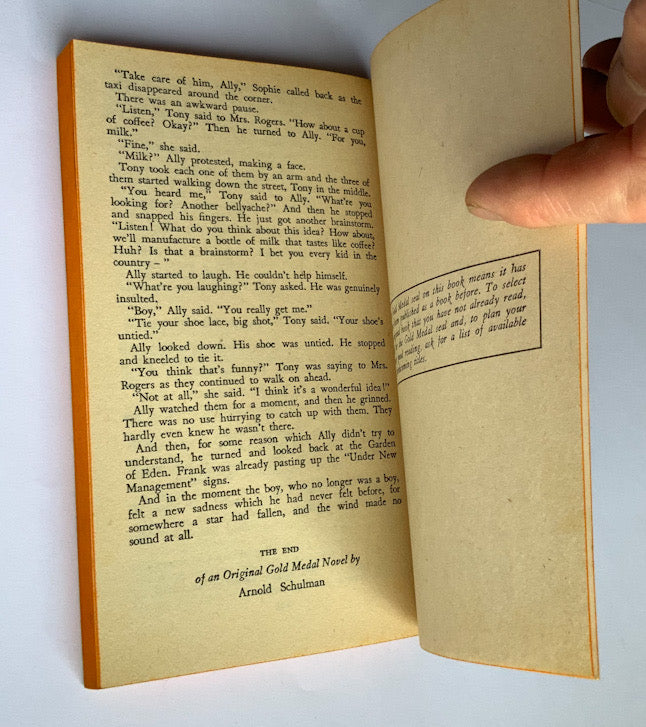 "Take care of him, Ally," Sophie called back as the
taxi disappeared around the corner.
There was an awkward pause.
"Listen," Tony said to Mrs. Rogers. "How about a cup
of coffee? Okay?" Then he turned to Ally. "For you,
milk."
"Fine," she said.
"Milk?" Ally protested, making a face.
Tony took each one of them by an arm and the three of
them started walking down the street, Tony in the middle.
"You heard me," Tony said to Ally. "What're you
looking for? Another bellyache?" And then he stopped
and snapped his fingers. He just got another brainstorm.
"Listen! What do you think about this idea? How about,
we'll manufacture a bottle of milk that tastes like coffee?
Huh? Is that a brainstorm? I bet you every kid in the
country – "
Ally started to laugh. He couldn't help himself.
"What're you laughing?" Tony asked. He was genuinely
insulted.
"Boy," Ally said. "You really get me."
"Tie your shoe lace, big shot," Tony said. "Your shoe's
untied."
Ally looked down. His shoe was untied. He stopped
and kneeled to tie it.
"You think that's funny?" Tony was saying to Mrs.
Rogers as they continued to walk on ahead.
"Not at all," she said. "I think it's a wonderful idea!"
Ally watched them for a moment, and then he grinned.
There was no use hurrying to catch up with them. They
hardly even knew he wasn't there.
And then, for some reason which Ally didn't try to
understand, he turned and looked back at the Garden
of Eden. Frank was already pasting up the "Under New
Management" signs.
And in the moment the boy, who no longer was a boy,
felt a new sadness which he had never felt before, for
somewhere a star had fallen, and the wind made no
sound at all.
THE END
of an Original Gold Medal Novel by
Arnold Schulman
Medal seal on this book means it has
published as a book before. To select
book that you have not already read,
the Gold Medal seal and, to plan your
reading, ask for a list of available
titles.